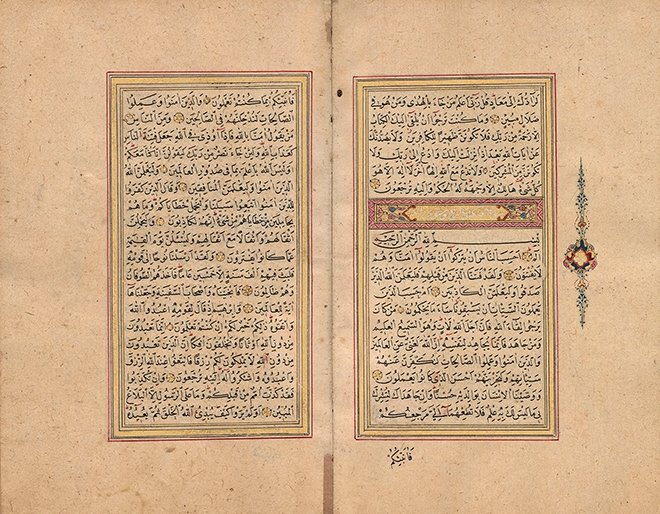 لَرَآدُّكَ اِلٰى مَعَادٍ قُلْ رَبّٖى اَعْلَمُ مَنْ جَاءَ بِالْهُدٰى وَمَنْ هُوَ فٖى
ضَلَالٍ مُبٖينٍ وَمَا كُنْتَ تَرْجُوا اَنْ يُلْقٰى اِلَيْكَ الْكِتَابُ
اِلَّا رَحْمَةً مِنْ رَبِّكَ فَلَا تَكُونَنَّ ظَهٖيرًا لِلْكَافِرٖينَ وَلَا يَصُدُّنَّكَ
عَنْ اٰيَاتِ اللّٰهِ بَعْدَ اِذْ اُنْزِلَتْ اِلَيْكَ وَادْعُ اِلٰى رَبِّكَ وَلَا
تَكُونَنَّ مِنَ الْمُشْرِكٖينَ وَلَا تَدْعُ مَعَ اللّٰهِ اِلٰهًا اٰخَرَ لَا اِلٰهَ اِلَّا هُوَ
كُلُّ شَىْءٍ هَالِكٌ اِلَّا وَجْهَهُ لَهُ الْحُكْمُ وَاِلَيْهِ تُرْجَعُونَ
بِسْمِ اللّٰهِ الرَّحْمٰنِ الرَّحٖيمِ
الٓمٓ اَحَسِبَ النَّاسُ اَنْ يُتْرَكُوا اَنْ يَقُولُوا اٰمَنَّا وَهُمْ
لَا يُفْتَنُونَ وَلَقَدْ فَتَنَّا الَّذٖينَ مِنْ قَبْلِهِمْ فَلَيَعْلَمَنَّ اللّٰهُ الَّذٖينَ
صَدَقُوا وَلَيَعْلَمَنَّ الْكَاذِبٖينَ اَمْ حَسِبَ الَّذٖينَ
يَعْمَلُونَ السَّيِّـَٔاتِ اَنْ يَسْبِقُونَا سَاءَ مَا يَحْكُمُونَ مَنْ كَانَ
يَرْجُوا لِقَاءَ اللّٰهِ فَاِنَّ اَجَلَ اللّٰهِ لَاٰتٍ وَهُوَ السَّمٖيعُ الْعَلٖيمُ
وَمَنْ جَاهَدَ فَاِنَّمَا يُجَاهِدُ لِنَفْسِهٖ اِنَّ اللّٰهَ لَغَنِىٌّ عَنِ الْعَالَمٖينَ
وَالَّذٖينَ اٰمَنُوا وَعَمِلُوا الصَّالِحَاتِ لَنُكَفِّرَنَّ عَنْهُمْ
سَيِّـَٔاتِهِمْ وَلَنَجْزِيَنَّهُمْ اَحْسَنَ الَّذٖى كَانُوا يَعْمَلُونَ
وَوَصَّيْنَا الْاِنْسَانَ بِوَالِدَيْهِ حُسْنًا وَاِنْ جَاهَدَاكَ لِتُشْرِكَ
بٖى مَا لَيْسَ لَكَ بِهٖ عِلْمٌ فَلَا تُطِعْهُمَا اِلَىَّ مَرْجِعُكُمْ
فَاُنَبِّئُكُمْ
فَاُنَبِّئُكُمْ بِمَا كُنْتُمْ تَعْمَلُونَ وَالَّذٖينَ اٰمَنُوا وَعَمِلُوا
الصَّالِحَاتِ لَنُدْخِلَنَّهُمْ فِى الصَّالِحٖينَ وَمِنَ النَّاسِ
مَنْ يَقُولُ اٰمَنَّا بِاللّٰهِ فَاِذَا اُوذِىَ فِى اللّٰهِ جَعَلَ فِتْنَةَ النَّاسِ
كَعَذَابِ اللّٰهِ وَلَئِنْ جَاءَ نَصْرٌ مِنْ رَبِّكَ لَيَقُولُنَّ اِنَّا كُنَّا مَعَكُمْ
اَوَلَيْسَ اللّٰهُ بِاَعْلَمَ بِمَا فٖى صُدُورِ الْعَالَمٖينَ وَلَيَعْلَمَنَّ اللّٰهُ
الَّذٖينَ اٰمَنُوا وَلَيَعْلَمَنَّ الْمُنَافِقٖينَ وَقَالَ الَّذٖينَ كَفَرُوا
لِلَّذٖينَ اٰمَنُوا اتَّبِعُوا سَبٖيلَنَا وَلْنَحْمِلْ خَطَايَاكُمْ وَمَا هُمْ
بِحَامِلٖينَ مِنْ خَطَايَاهُمْ مِنْ شَىْءٍ اِنَّهُمْ لَكَاذِبُونَ وَلَيَحْمِلُنَّ
اَثْقَالَهُمْ وَاَثْقَالًا مَعَ اَثْقَالِهِمْ وَلَيُسْـَٔلُنَّ يَوْمَ الْقِيٰمَةِ
عَمَّا كَانُوا يَفْتَرُونَ وَلَقَدْ اَرْسَلْنَا نُوحًا اِلٰى قَوْمِهٖ
فَلَبِثَ فٖيهِمْ اَلْفَ سَنَةٍ اِلَّا خَمْسٖينَ عَامًا فَاَخَذَهُمُ الطُّوفَانُ
وَهُمْ ظَالِمُونَ فَاَنْجَيْنَاهُ وَاَصْحَابَ السَّفٖينَةِ وَجَعَلْنَاهَا
اٰيَةً لِلْعَالَمٖينَ وَاِبْرٰهٖيمَ اِذْ قَالَ لِقَوْمِهِ اعْبُدُوا اللّٰهَ
وَاتَّقُوهُ ذٰلِكُمْ خَيْرٌ لَكُمْ اِنْ كُنْتُمْ تَعْلَمُونَ اِنَّمَا تَعْبُدُونَ
مِنْ دُونِ اللّٰهِ اَوْثَانًا وَتَخْلُقُونَ اِفْكًا اِنَّ الَّذٖينَ تَعْبُدُونَ
مِنْ دُونِ اللّٰهِ لَا يَمْلِكُونَ لَكُمْ رِزْقًا فَابْتَغُوا عِنْدَ اللّٰهِ الرِّزْقَ
وَاعْبُدُوهُ وَاشْكُرُوا لَهُ اِلَيْهِ تُرْجَعُونَ وَاِنْ تُكَذِّبُوا
فَقَدْ كَذَّبَ اُمَمٌ مِنْ قَبْلِكُمْ وَمَا عَلَى الرَّسُولِ اِلَّا الْبَلَاغُ
الْمُبٖينُ اَوَلَمْ يَرَوْا كَيْفَ يُبْدِئُ اللّٰهُ الْخَلْقَ ثُمَّ يُعٖيدُهُ